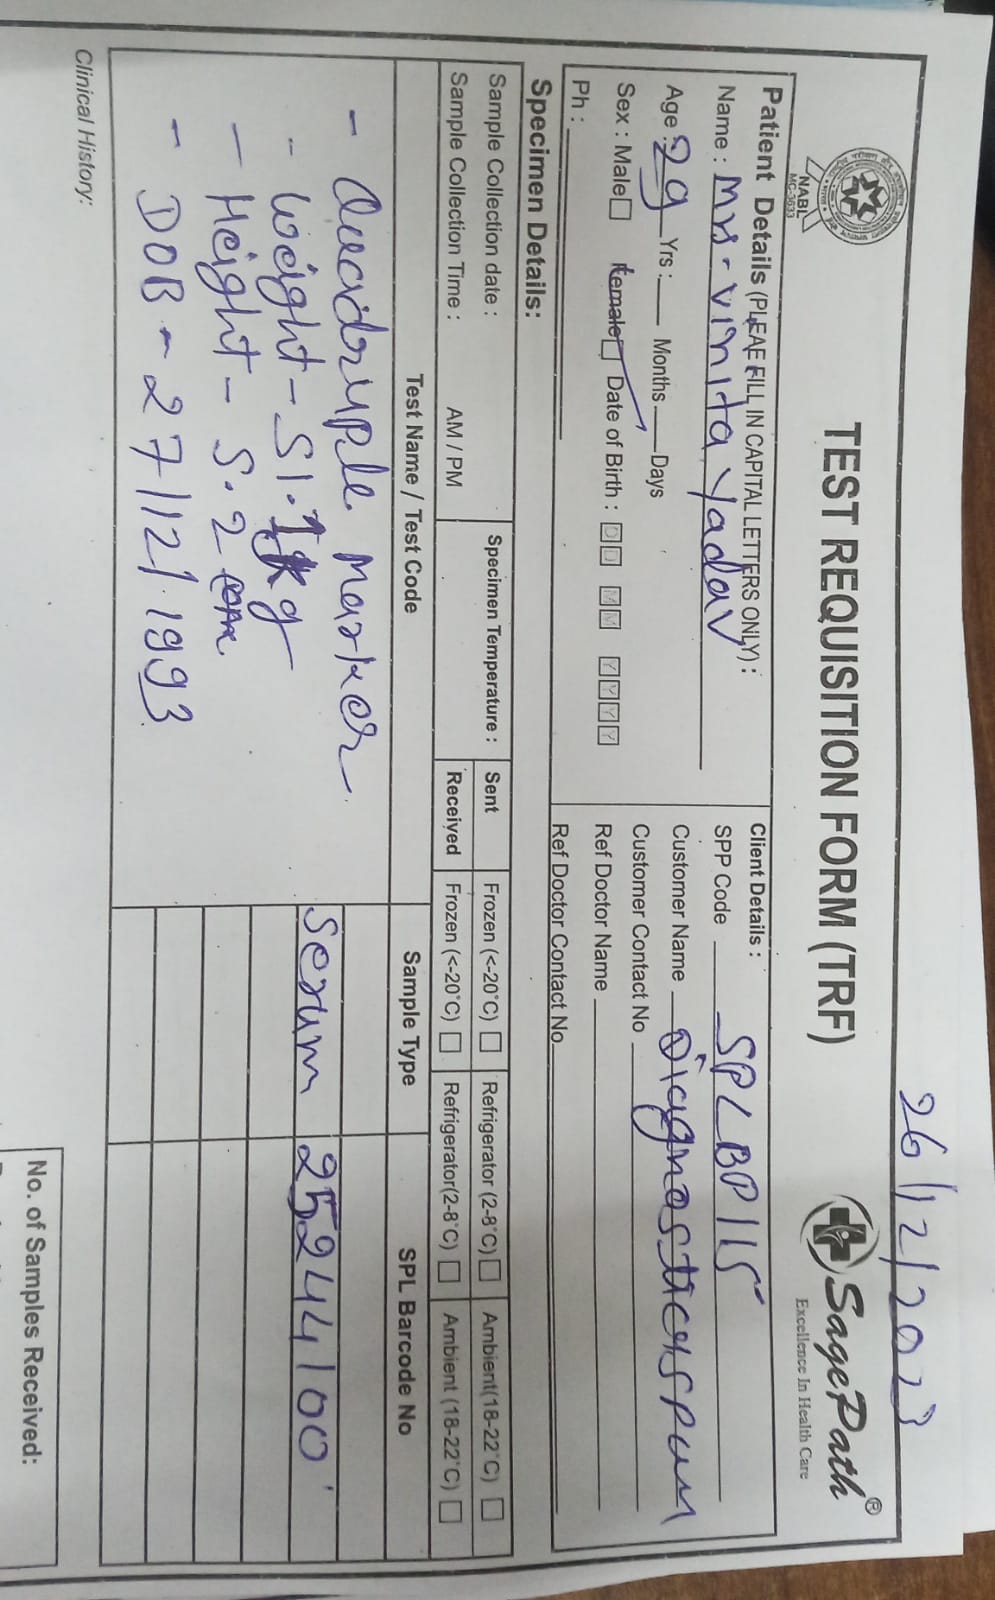 26/12/2023
TEST REQUISITION FORM (TRF)
NABL
MC-3633
SagePath®
Excellence In Health Care
Patient Details (PLEAE FILL IN CAPITAL LETTERS ONLY) :
Name : Mrs. Vinita Yadav
Age : 29 Yrs : Months Days
Sex : Male Female Date of Birth : D D M M Y Y Y Y
Ph :
Client Details :
SPP Code SPLBP115
Customer Name
Customer Contact No
Ref Doctor Name
Ref Doctor Contact No
Specimen Details:
Sample Collection date :
Sample Collection Time : AM / PM
Specimen Temperature :
Sent Frozen (<-20°C) Refrigerator (2-8°C) Ambient(18-22°C)
Received Frozen (<-20°C) Refrigerator(2-8°C) Ambient (18-22°C)
Test Name / Test Code Sample Type SPL Barcode No
- Quadruple Marker
- Weight - 51. kg Serum 25244100
- Height - 5.2
- DOB - 27/12/1993
Clinical History:
No. of Samples Received: